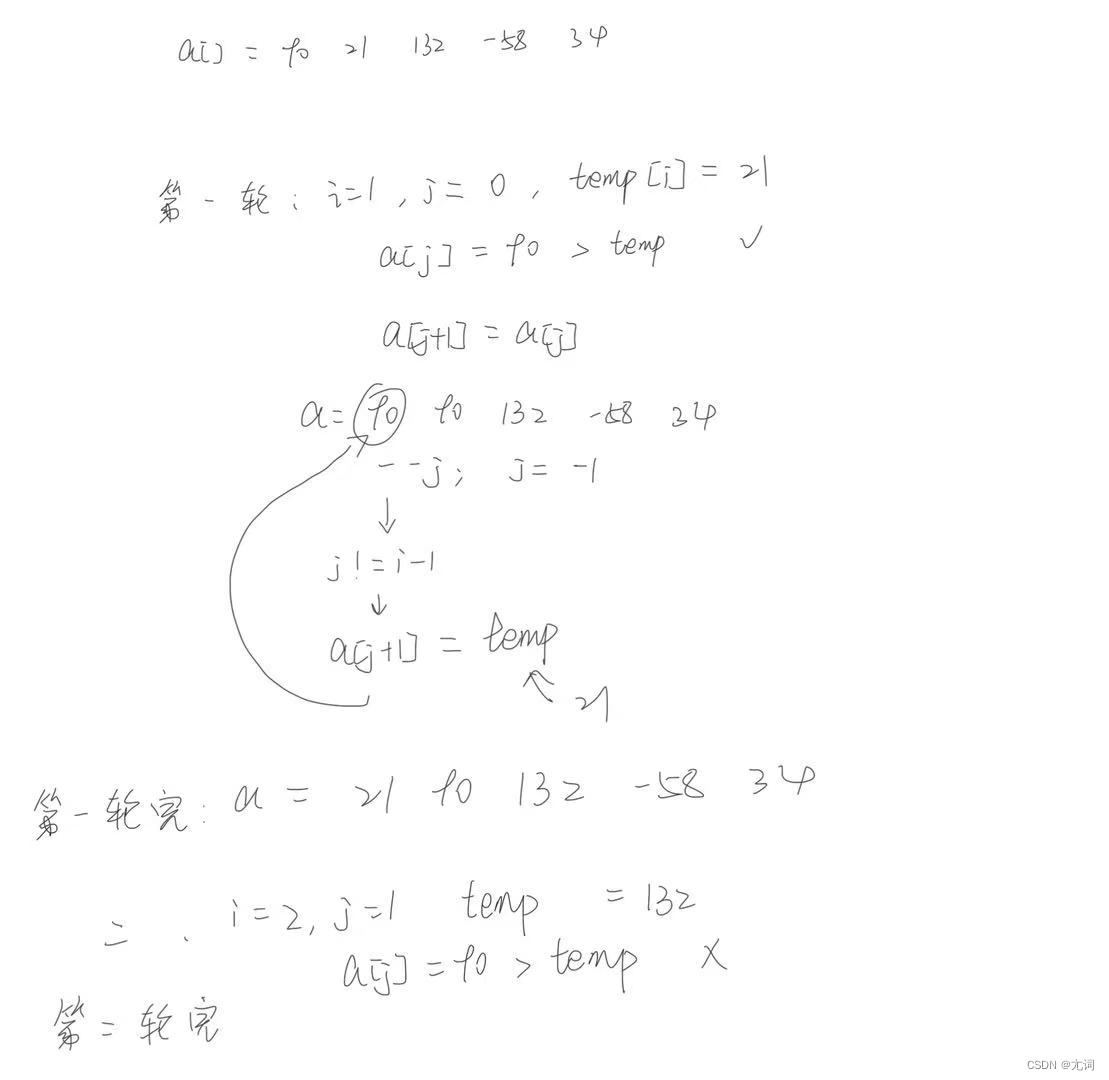 a[] = 90 21 132 -58 34
第一轮: i=1, j= 0, temp[i] = 21
a[j] = 90 > temp ✓
a[j+1] = a[j]
a= 90 90 132 -58 34
--j; j= -1
↓
j!=i-1
↓
a[j+1] = temp
21
第一轮完: a = 21 90 132 -58 34
二、i=2, j=1 temp = 132
a[j] = 90 > temp X
第二轮完
CSDN @尢词